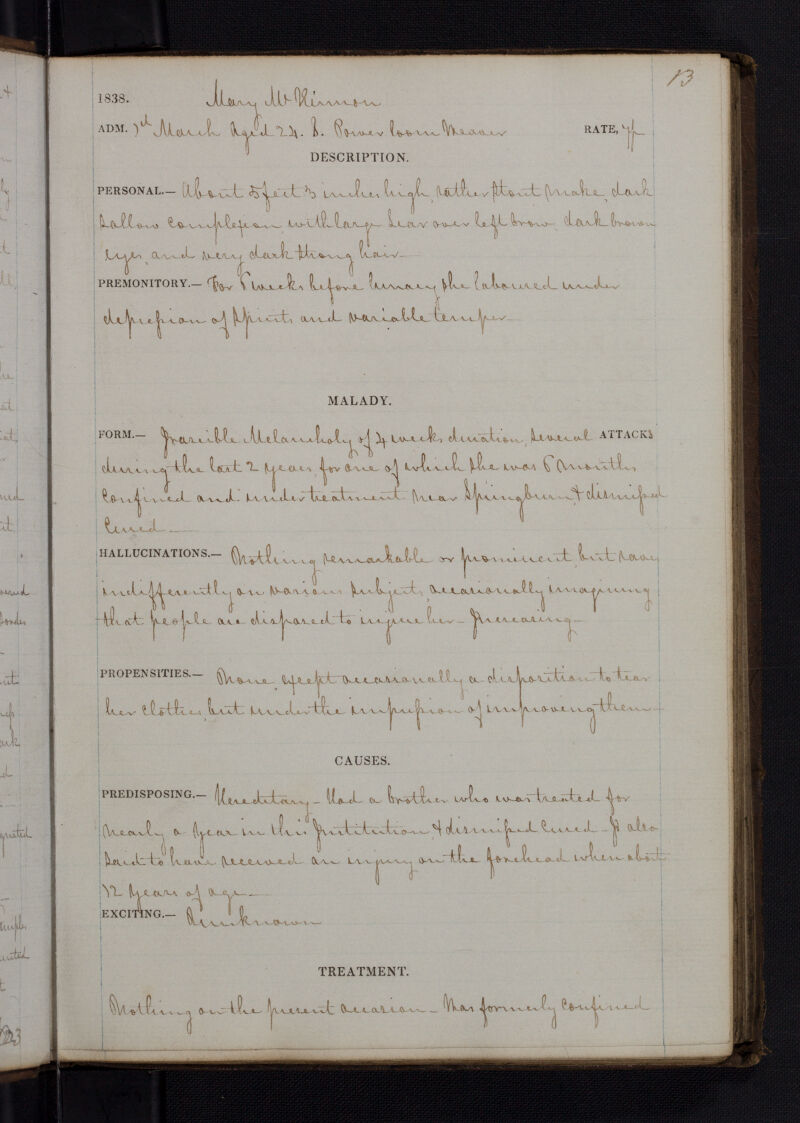 13
1838. Mary McKinnon
ADM. March Aged 24. S. Power loom Weaver RATE, 7/
DESCRIPTION.
PERSONAL.— About 5 feet 3 inches high, rather stout make, dark
sallow complexion with large scar over left brow dark brown
eyes, and very dark strong hair—
PREMONITORY.— For weeks before lunacy she laboured under
depression of spirits and variable temper—
MALADY.
FORM.— Irascible Melancholy of 4 weeks duration, several ATTACKS
during the last 2 years, for one of which she was 6 months
confined and under treatment near Springburn & dismissed
Cured—
HALLUCINATIONS.— Nothing remarkable or prominent but raves
indifferently on various subjects, occasionally imagining
that people are disposed to injure her— Increasing—
PROPENSITIES.— None, except occasionally a disposition to tear
her clothes, but under the impression of improving them—
CAUSES.
PREDISPOSING.— Hereditary— Had a brother who was treated for
nearly a year in this Institution & dismissed Cured— Is also
said to have received an injury on the forehead when about
12 years of age—
EXCITING.— Unknown
TREATMENT.
Nothing on the present occasion— Was formerly confined